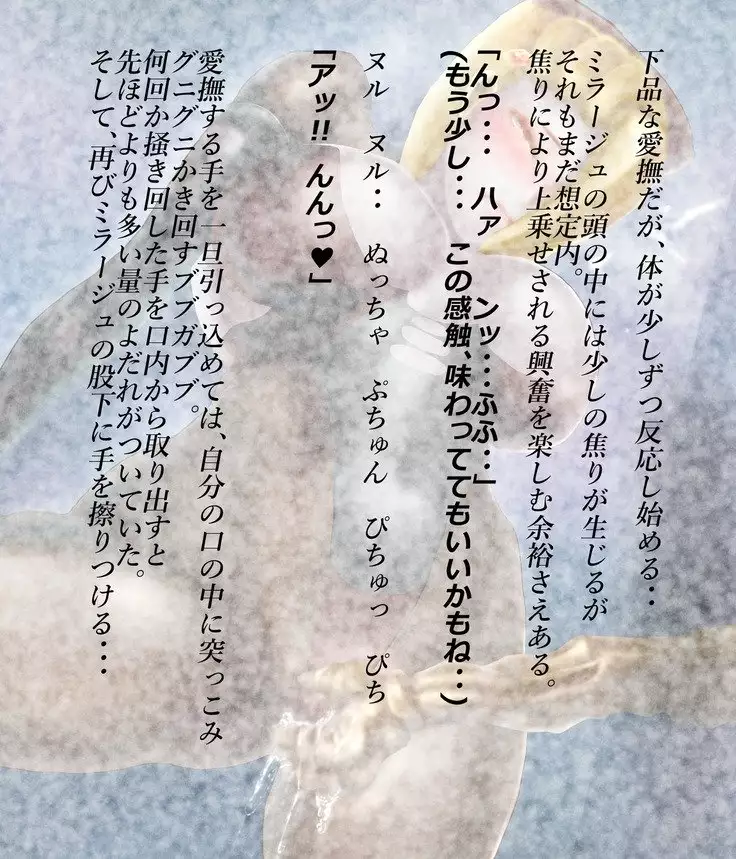 下品な愛撫だが、体が少しずつ反応し始める‥
ミラージュの頭の中には少しの焦りが生じるが
それもまだ想定内。
焦りにより上乗せされる興奮を楽しむ余裕さえある。
「んっ・・・　ハァ　　ンッ・・・ふふ‥」
(もう少し・・・　この感触、味わっててもいいかもね‥)
ヌル　ヌル‥　ぬっちゃ　ぷちゅん　ぴちゅっ　ぴち
「アッ!!　んんっ♥」
愛撫する手を一旦引っ込めては、自分の口の中に突っこみ
グニグニかき回すブブガブブ。
何回か掻き回した手を口内から取り出すと
先ほどよりも多い量のよだれがついていた。
そして、再びミラージュの股下に手を擦りつける・・・